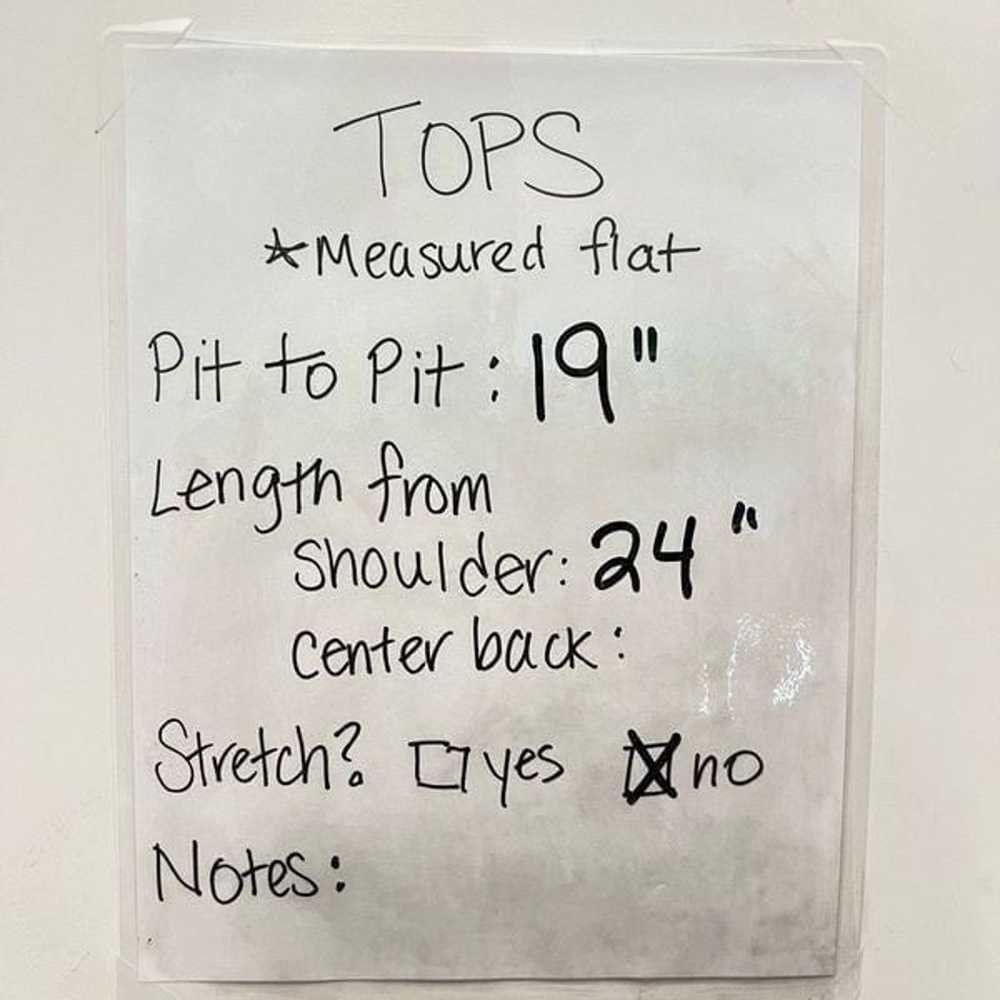 TOPS
*Measured flat
Pit to Pit: 19"
Length from
shoulder: 24"
center back:
Stretch? ☐ yes ☒ no
Notes: